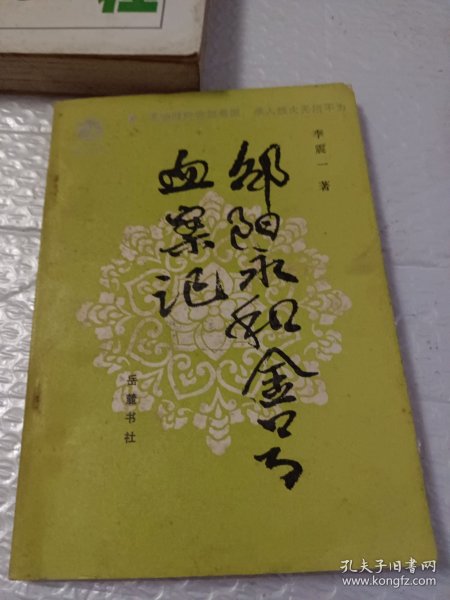 李震一 著
邵阳永和金号
血案记
岳麓书社
孔夫子旧书网
www.kongfz.com